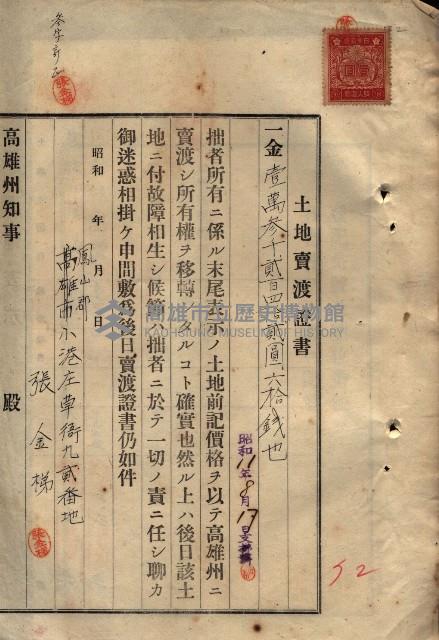 土地賣渡證書
一金壹萬參千貳百四拾貳圓六拾錢也
昭和11年8月17日
拙者所有ニ係ル末尾表示ノ土地前記價格ヲ以テ高雄州ニ
賣渡シ所有權ヲ移轉シタルコト確實也然ル上ハ後日該土
地ニ付故障相生シ候節ハ拙者ニ於テ一切ノ責ニ任シ聊カ
御迷惑相掛ケ申間敷爲後日賣渡證書仍如件
昭和 年 月 日
鳳山郡
高雄市小港庄草衙九貳番地
張金梯
高雄州知事 殿
参字訂正
52
高雄市立歷史博物館
KAOHSIUNG MUSEUM OF HISTORY